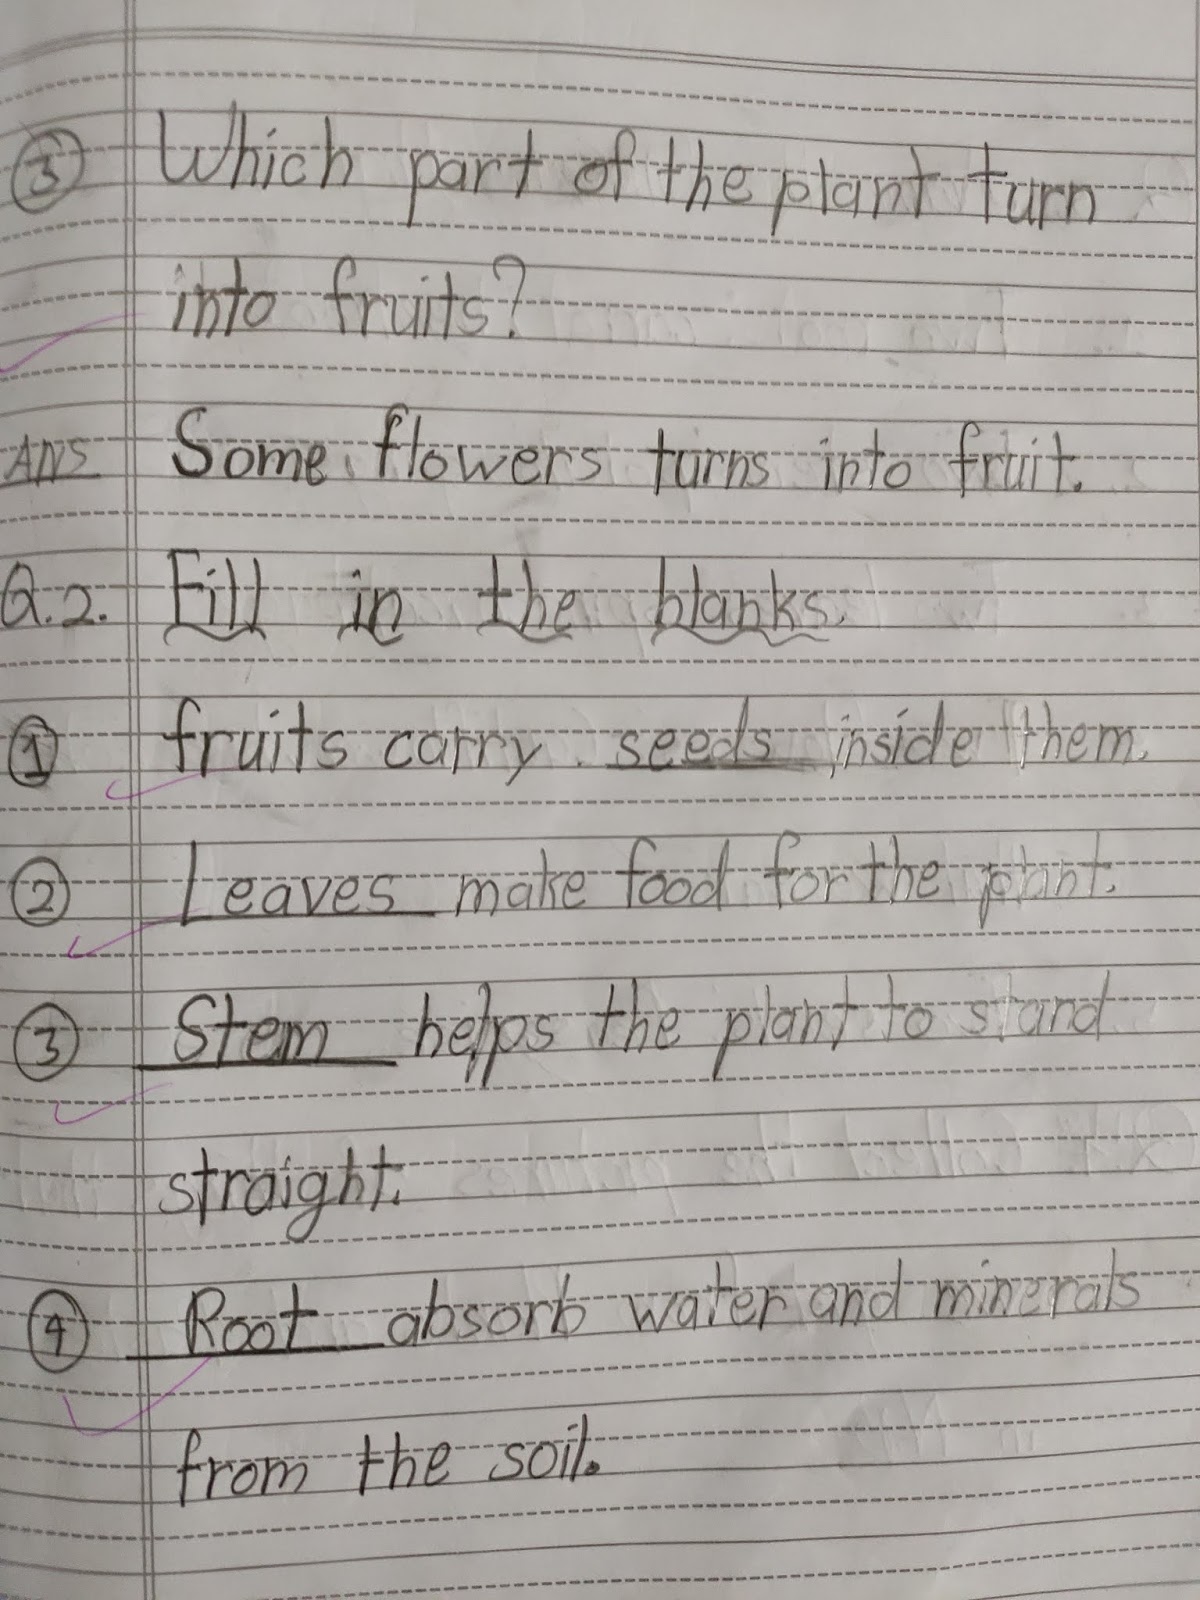 ③ Which part of the plant turn
into fruits?
Ans Some flowers turns into fruit.
Q.2. Fill in the blanks.
① fruits carry seeds inside them.
② Leaves make food for the plant.
③ Stem helps the plant to stand
straight.
④ Root absorb water and minerals
from the soil.